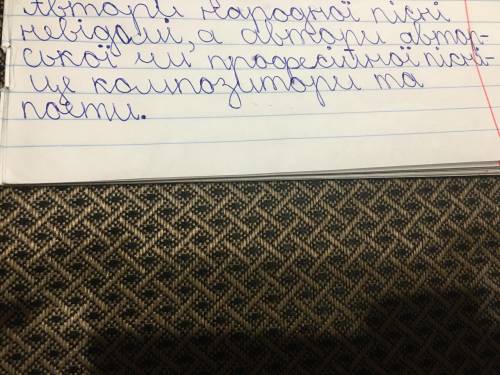 Автори народної пісні
невідомі, а автори автор-
ської чи професійної пісні-
це композитори та
поети.